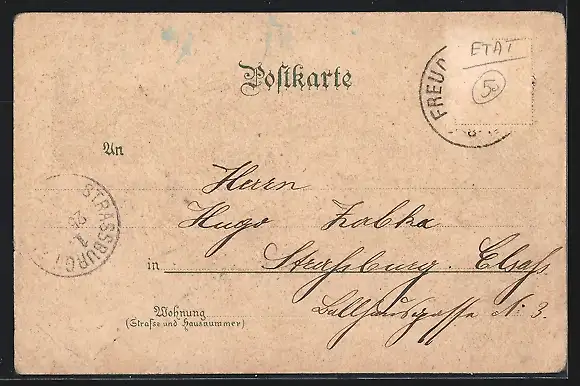 Postkarte
ETAT
50
FREUD
An
Herrn
Hugo Zabka
STRASSBURG
25
1
in Straßburg. Elsaß
Wohnung Ballhausgasse N: 3.
(Strafse und Hausnummer)